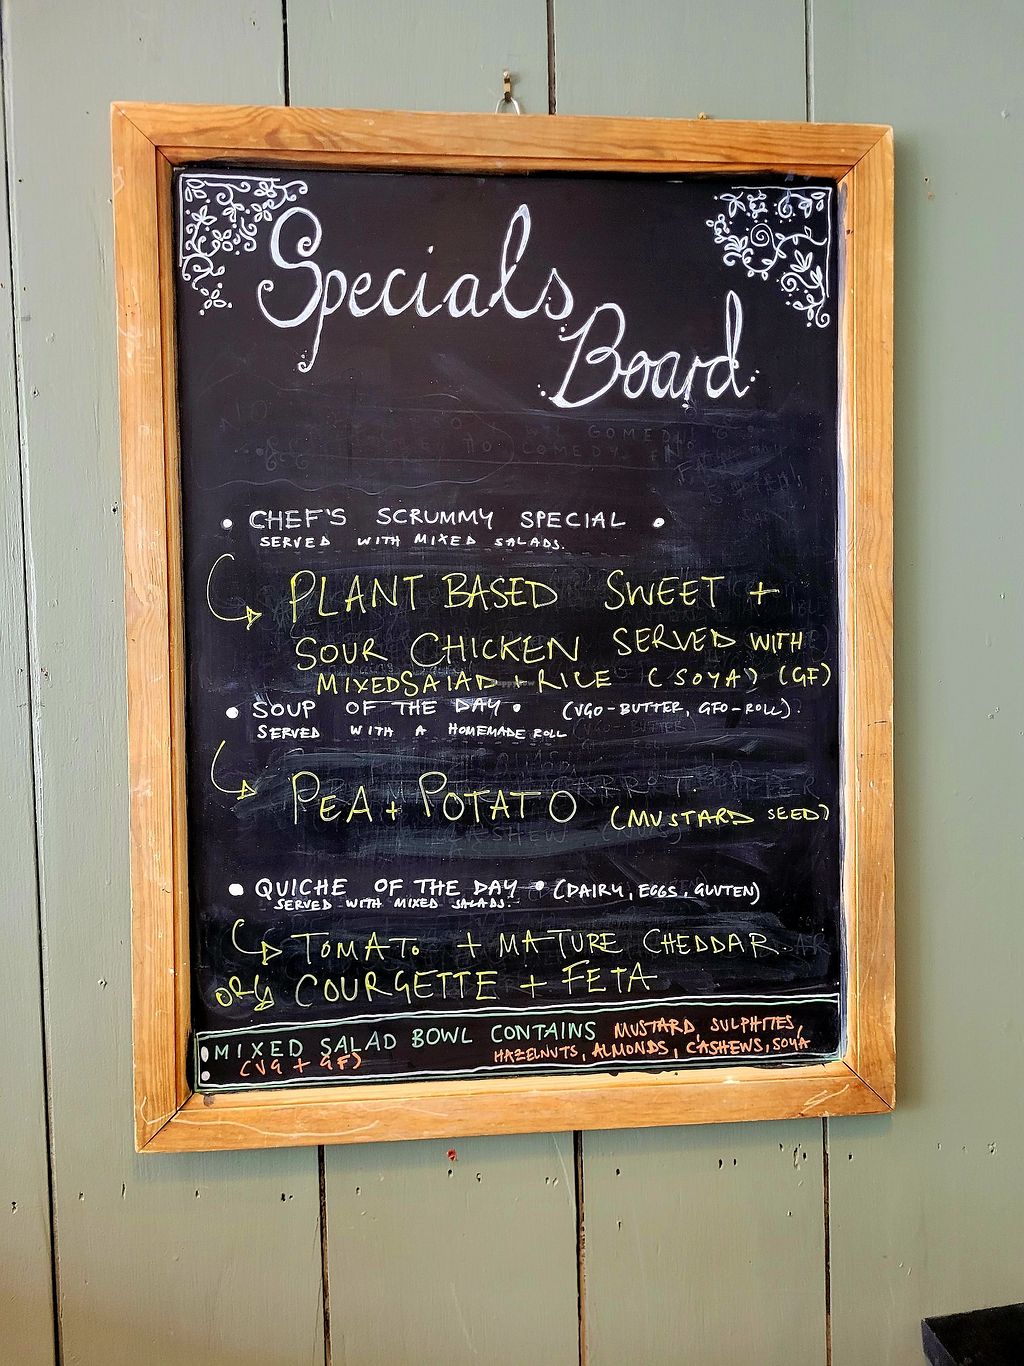 Specials
Board
• CHEF'S SCRUMMY SPECIAL •
SERVED WITH MIXED SALADS.
PLANT BASED SWEET +
SOUR CHICKEN SERVED WITH
MIXED SALAD + RICE (SOYA) (GF)
• SOUP OF THE DAY • (VGO-BUTTER, GFO-ROLL).
SERVED WITH A HOMEMADE ROLL
PEA + POTATO (MUSTARD SEED)
• QUICHE OF THE DAY • (DAIRY, EGGS, GLUTEN)
SERVED WITH MIXED SALADS.
TOMATO + MATURE CHEDDAR.
OR COURGETTE + FETA
MIXED SALAD BOWL CONTAINS MUSTARD, SULPHITES,
(VG + GF) HAZELNUTS, ALMONDS, CASHEWS, SOYA